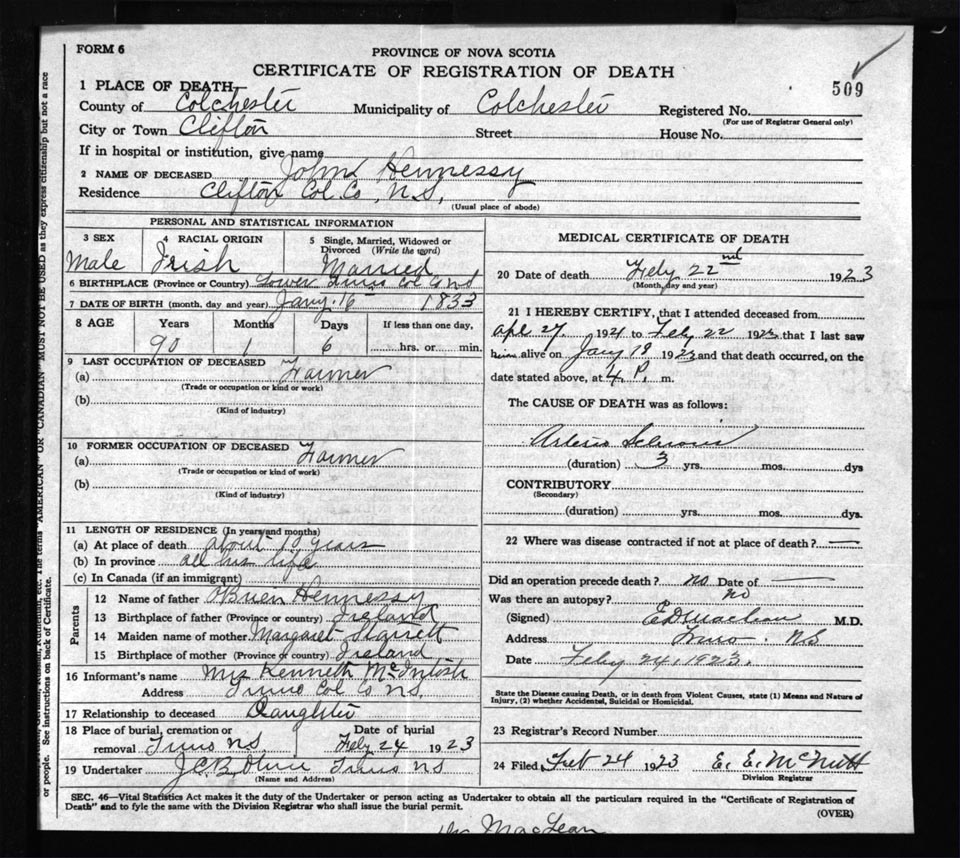 FORM 6
PROVINCE OF NOVA SCOTIA
CERTIFICATE OF REGISTRATION OF DEATH
509
1 PLACE OF DEATH
County of Colchester Municipality of Colchester Registered No.
(For use of Registrar General only)
City or Town Clifton Street House No.
If in hospital or institution, give name
2 NAME OF DECEASED John Hennessy
Residence Clifton Col. Co., N.S,
(Usual place of abode)
PERSONAL AND STATISTICAL INFORMATION
3 SEX 4 RACIAL ORIGIN 5 Single, Married, Widowed or Divorced (Write the word)
Male Irish Married
6 BIRTHPLACE (Province or Country) Lower Truro Col Co NS
7 DATE OF BIRTH (month, day and year) Jany. 16 1833
8 AGE Years Months Days If less than one day,
90 1 6 hrs. or min.
9 LAST OCCUPATION OF DECEASED
(a) Farmer
(Trade or occupation or kind or work)
(b)
(Kind of industry)
10 FORMER OCCUPATION OF DECEASED
(a) Farmer
(Trade or occupation or kind of work)
(b)
(Kind of industry)
11 LENGTH OF RESIDENCE (In years and months)
(a) At place of death about years
(b) In province all his life
(c) In Canada (if an immigrant)
Parents
12 Name of father O'Brien Hennessy
13 Birthplace of father (Province or country) Ireland
14 Maiden name of mother Margaret
15 Birthplace of mother (Province or country) Ireland
16 Informant's name Mrs Kenneth McIntosh
Address Truro Col Co NS.
17 Relationship to deceased Daughter
18 Place of burial, cremation or removal Truro NS. Date of burial Feby 24 1923
19 Undertaker J.C.B. Truro NS
(Name and Address)
MEDICAL CERTIFICATE OF DEATH
20 Date of death Feby 22nd 1923
(Month, day and year)
21 I HEREBY CERTIFY, that I attended deceased from
Apl 27. 1921 to Feby 22 1923 that I last saw
him alive on Jany 18 1923 and that death occurred, on the
date stated above, at 4 P. m.
The CAUSE OF DEATH was as follows:
Arterio Sclerosis
(duration) 3 yrs. mos. dys
CONTRIBUTORY
(Secondary)
(duration) yrs. mos. dys.
22 Where was disease contracted if not at place of death? —
Did an operation precede death? no Date of —
Was there an autopsy? no
(Signed) E D Maclean M.D.
Address Truro. NS
Date Feby 24, 1923.
State the Disease causing Death, or in death from Violent Causes, state (1) Means and Nature of
Injury, (2) whether Accidental, Suicidal or Homicidal.
23 Registrar's Record Number
24 Filed, Feb 24 1923 E. E. McNutt
Division Registrar
SEC. 46—Vital Statistics Act makes it the duty of the Undertaker or person acting as Undertaker to obtain all the particulars required in the "Certificate of Registration of
Death" and to fyle the same with the Division Registrar who shall issue the burial permit.
(OVER)
Dr MacLean
etc. The terms "AMERICAN" OR "CANADIAN" MUST NOT BE USED as they express citizenship but not a race
or people. See instructions on back of Certificate.